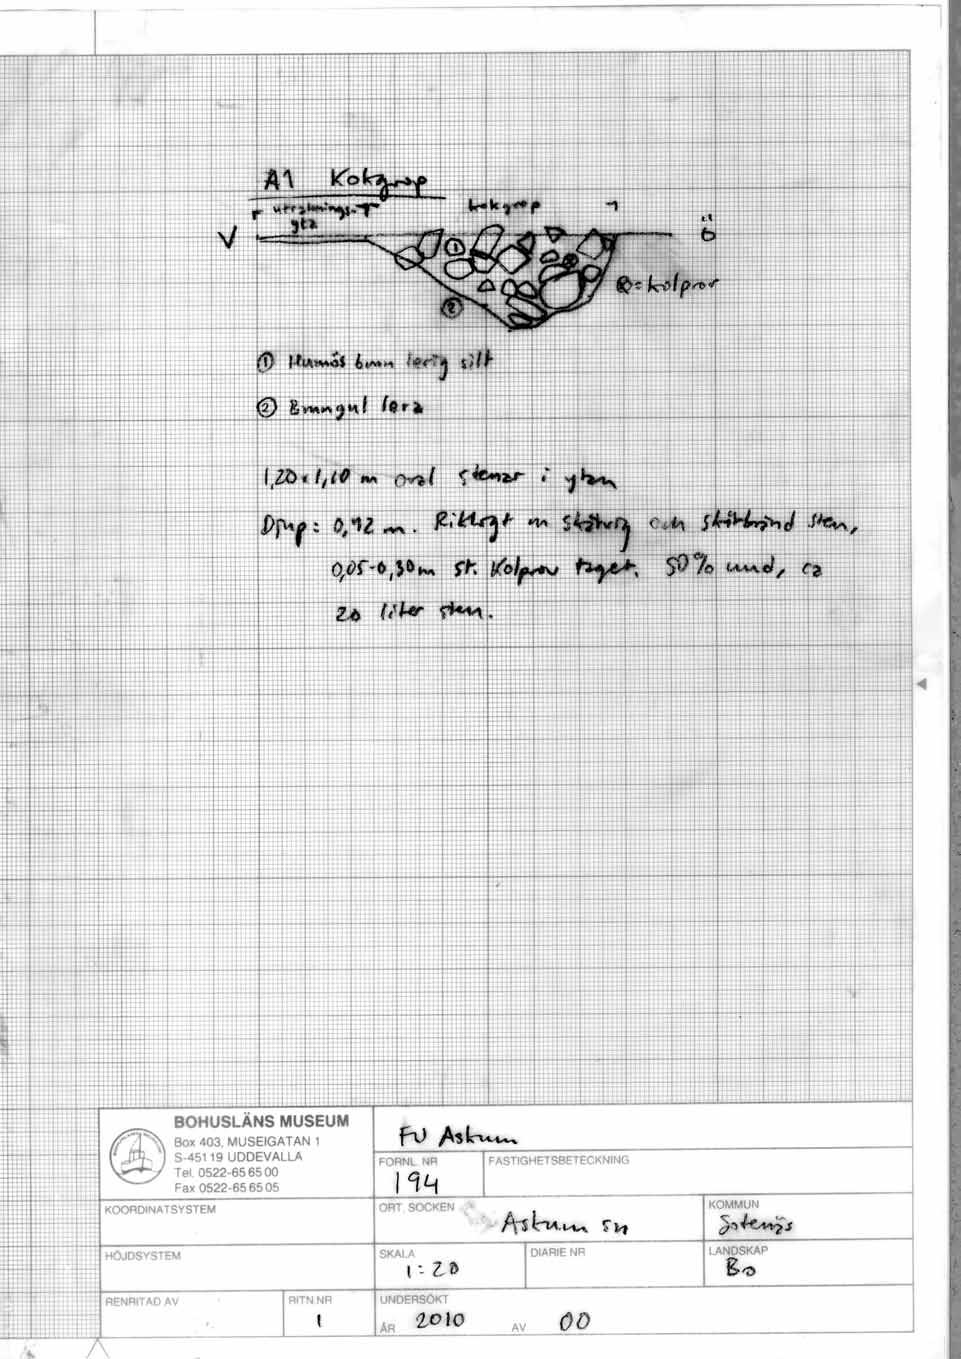 A1 Kokgrop
utrakningsyta
kokgrop
V
Ö
①
②
⊗=kolprov
① Humös brun lerig silt
② Brungul lera
1,20x1,10 m oval stenar i ytan
Djup: 0,42 m. Rikligt m skärvig och skörbränd sten,
0,05-0,30m st. Kolprov taget. 50% und, ca
20 liter sten.
BOHUSLÄNS MUSEUM
Box 403, MUSEIGATAN 1
S-451 19 UDDEVALLA
Tel. 0522-65 65 00
Fax 0522-65 65 05
FU Askum
FORNL. NR
194
FASTIGHETSBETECKNING
KOORDINATSYSTEM
ORT, SOCKEN
Askum sn
KOMMUN
Sotenäs
HÖJDSYSTEM
SKALA
1:20
DIARIE NR
LANDSKAP
Bo
RENRITAD AV
RITN.NR
1
UNDERSÖKT
ÅR 2010 AV OO